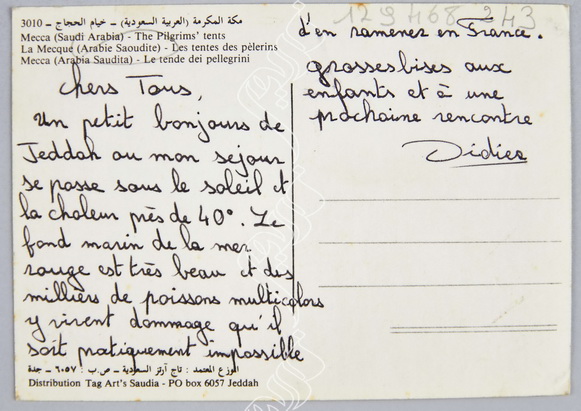 3010 – مكة المكرمة (العربية السعودية) – خيام الحجاج
Mecca (Saudi Arabia) - The Pilgrims' tents
La Mecque (Arabie Saoudite) - Les tentes des pèlerins
Mecca (Arabia Saudita) - Le tende dei pellegrini
chers Tous,
Un petit bonjours de
Jeddah ou mon sejour
se passe sous le soleil et
la chaleur près de 40°. Le
fond marin de la mer
rouge est très beau et des
milliers de poissons multicolors
y vivent dommage qu'il
soit pratiquement impossible
الموزع المعتمد : تاج آرتز السعودية – ص.ب : ٦٠٥٧ – جدة
Distribution Tag Art's Saudia - PO box 6057 Jeddah
129 468 243
d'en ramener en France.
grosses bises aux
enfants et à une
prochaine rencontre
Didier